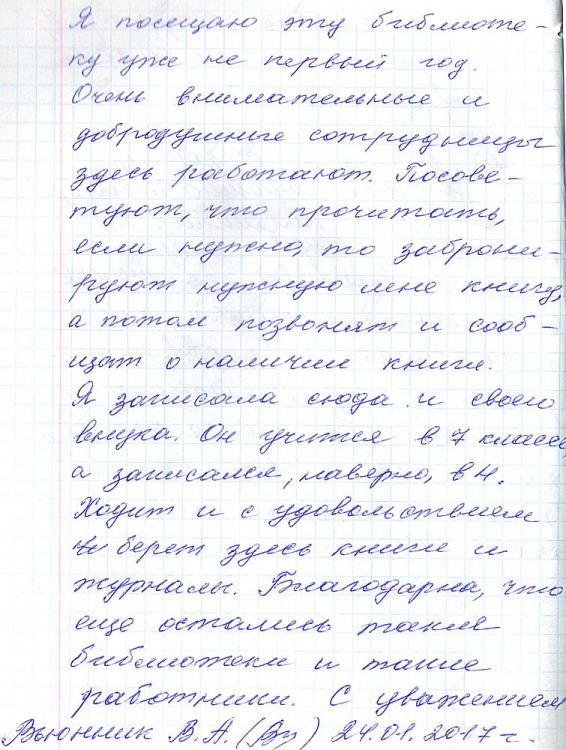 Я посещаю эту библиоте-
ку уже не первый год.
Очень внимательные и
добродушные сотрудницы
здесь работают. Посове-
туют, что прочитать,
если нужно, то заброни-
руют нужную мне книгу,
а потом позвонят и сооб-
щат о наличии книги.
Я записала сюда и своего
внука. Он учится в 7 классе,
а записался, наверно, в 4.
Ходит и с удовольствием
берет здесь книги и
журналы. Благодарна, что
еще остались такие
библиотеки и такие
работники. С уважением
Вьюнник В. А. (Ву) 24.01.2017 г.